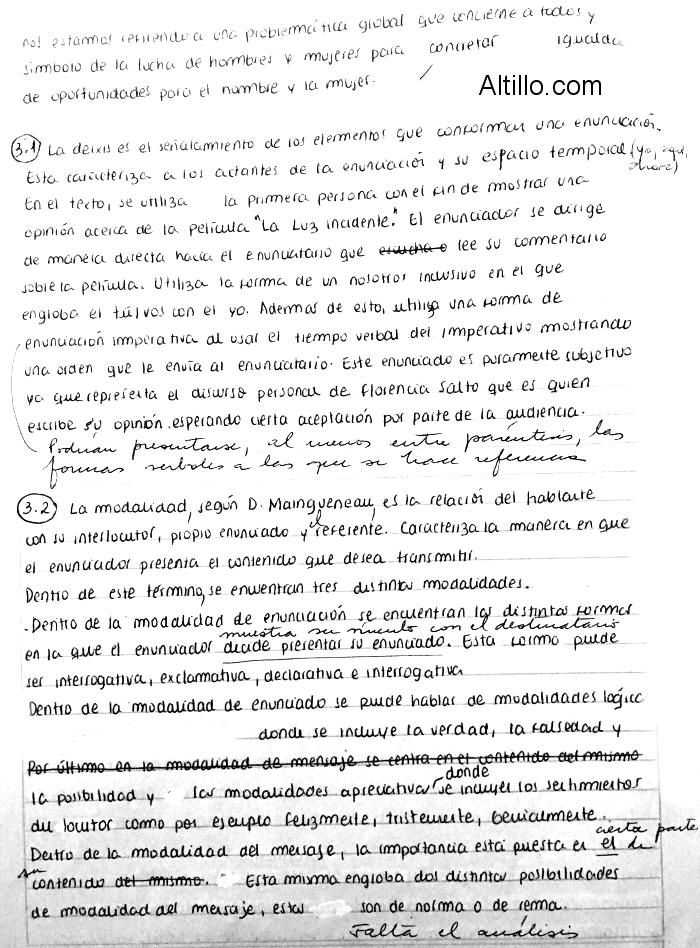 nos estamos refiriendo a una problemática global que concierne a todos y
símbolo de la lucha de hombres y mujeres para concretar igualda
de oportunidades para el hombre y la mujer.
Altillo.com
3.1 La deixis es el señalamiento de los elementos que conforman una enunciación.
Esta caracteriza a los actantes de la enunciación y su espacio temporal (yo, aquí,
ahora)
En el texto, se utiliza la primera persona con el fin de mostrar una
opinión acerca de la película "La Luz incidente." El enunciador se dirige
de manera directa hacia el enunciatario que escucha o lee su comentario
sobre la película. Utiliza la forma de un nosotros inclusivo en el que
engloba el tú/vos con el yo. Además de esto, utiliza una forma de
enunciación imperativa al usar el tiempo verbal del imperativo mostrando
una orden que le envía al enunciatario. Este enunciado es puramente subjetivo
ya que representa el discurso personal de Florencia Salto que es quien
escribe su opinión esperando cierta aceptación por parte de la audiencia.
Podrían presentarse, al menos entre paréntesis, las
formas verbales a las que se hace referencia
3.2 La modalidad, según D. Maingueneau, es la relación del hablante
con su interlocutor, propio enunciado y el referente. Caracteriza la manera en que
el enunciador presenta el contenido que desea transmitir.
Dentro de este término, se encuentran tres distintas modalidades.
-Dentro de la modalidad de enunciación se encuentran las distintas formas
muestra su vínculo con el destinatario
en la que el enunciador decide presentar su enunciado. Esta forma puede
ser interrogativa, exclamativa, declarativa e interrogativa
Dentro de la modalidad de enunciado se puede hablar de modalidades lógica
donde se incluye la verdad, la falsedad y
Por último en la modalidad de mensaje se centra en el contenido del mismo
la posibilidad y las modalidades apreciativas donde se incluyen los sentimientos
del locutor como por ejemplo felizmente, tristemente, genialmente.
Dentro de la modalidad del mensaje, la importancia está puesta en el de cierta parte
su contenido del mismo. Esta misma engloba dos distintas posibilidades
de modalidad del mensaje, estas son de norma o de rema.
Falta el análisis